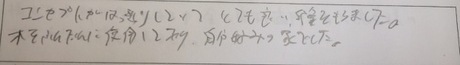 コンセプトがはっきりしていて とても良い印象をもちました。
木をふんだんに使用しており、自分好みの家でした。